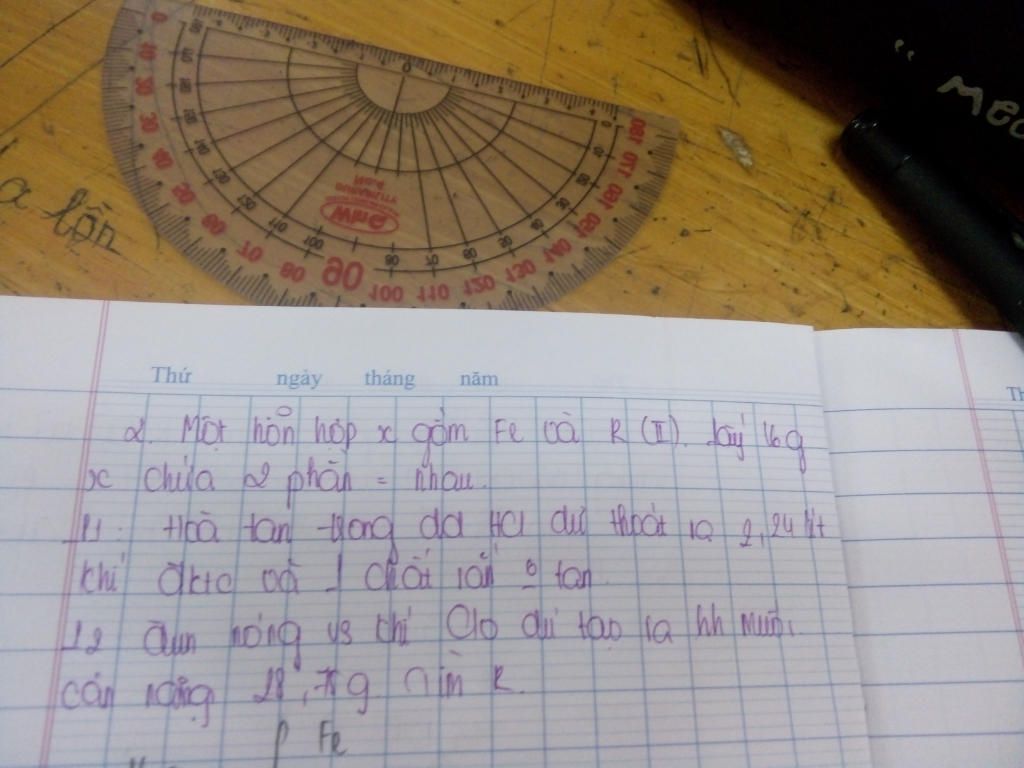 a lồn
" MEO
Thứ ngày tháng năm
2. Một hỗn hợp x gồm Fe và R (II). Lấy 16g
x chia 2 phần = nhau.
Hoà tan trong dd HCl dư thoát ra 2,24 lít
khí đktc và 1 chất rắn 0 tan.
Đun nóng vs khí Clo dư tạo ra hh muối
cân nặng g. R.
Fe